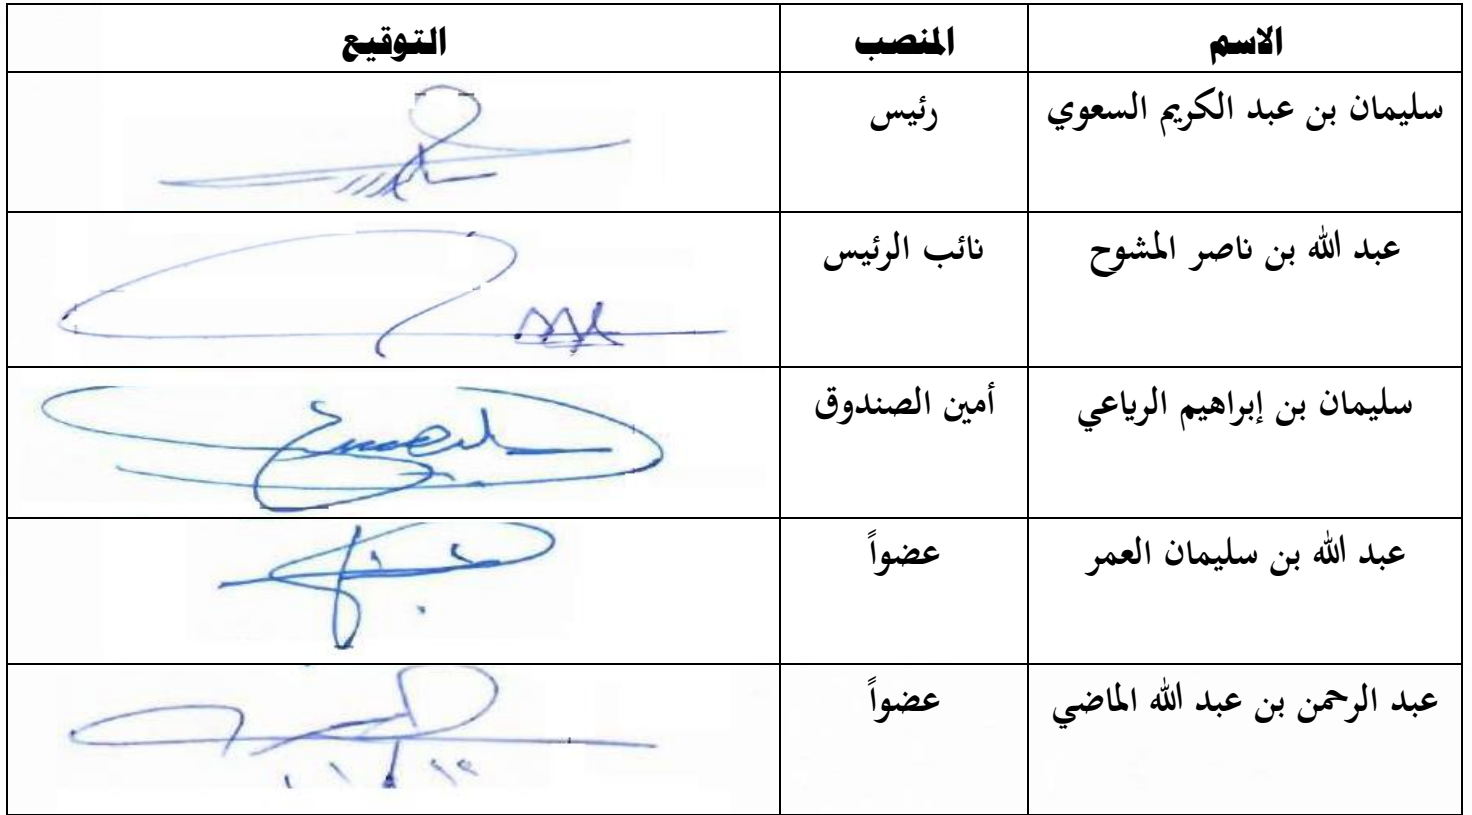 الاسم المنصب التوقيع
سليمان بن عبد الكريم السعوي رئيس
عبد الله بن ناصر المشوح نائب الرئيس
سليمان بن إبراهيم الرباعي أمين الصندوق
عبد الله بن سليمان العمر عضواً
عبد الرحمن بن عبد الله الماضي عضواً